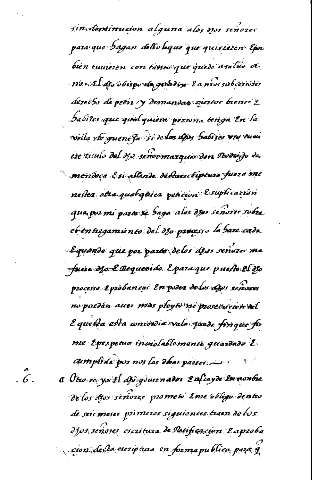 sin diminucion alguna a los dhos señores
para que hagan dello lo que que quisieren E por
bien tuvieren con tanto que quede a salvo a
El dho obispo de
derecho de pedir y demandar ciertos bienes E
habites que qualquiera persona tenga En la
villa si de los dhos habites no
titulo del dho señor marques don Rodrigo de
mendoça E si allende desta escriptura fuere me
nester otra qualquiera peticion E suplicacion
que por mi parte se haga a los dhos señores sobre
el entregamiento del dho proceso la hare cada
E quando que por parte de los dhos señores me
fuere dho E Requerido. E para que puesto El dho
proceso E probanças En poder de los dhos señores
no puedan aver mas pleyto ni prosecucion del
E questa esta concordia vala quede firme
me E perpetuo inviolablemente guardado E
cumplido por nos las dhas partes.
6. a Otro si yo El dho governador E alcayde En nombre
de los dhos señores prometo E me obligo dentro
de seis meses primeros siguientes traere de los
dhos señores escritura de Ratificacion E aproba
cion desta escriptura en forma publica para q